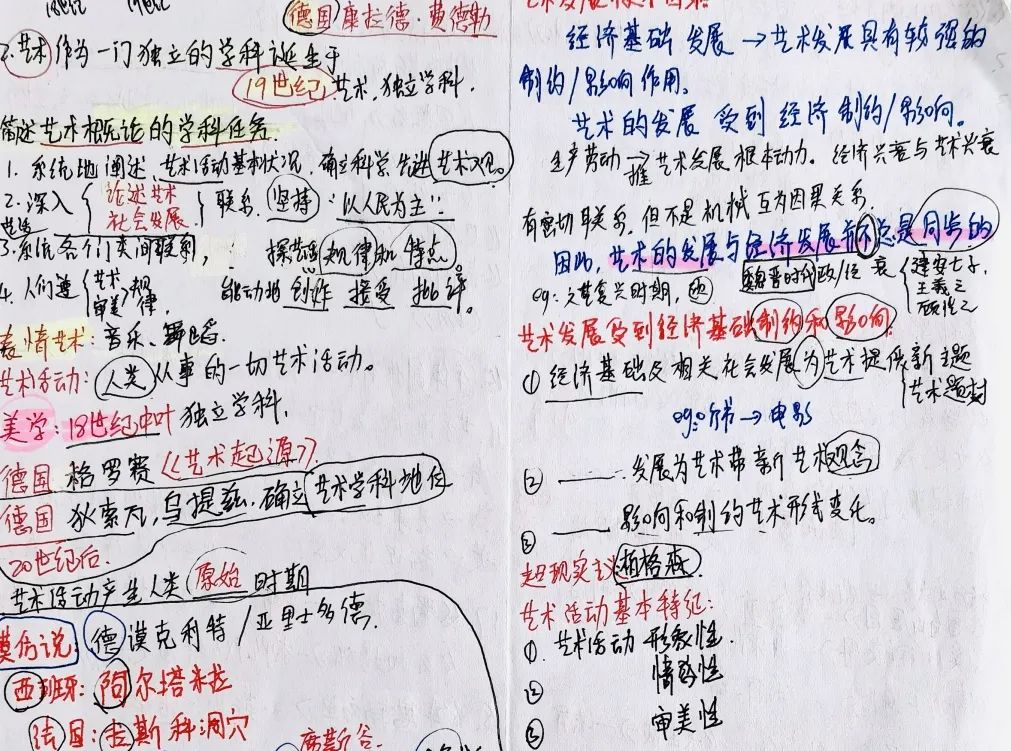 18世纪 19世纪
德国 康拉德·费德勒
2.艺术作为一门独立的学科诞生于
19世纪 艺术,独立学科.
简述艺术概论的学科任务:
1. 系统地阐述,艺术活动基本状况,确立科学先进艺术观。
2.深入 { 论述艺术 社会发展 } 联系. 坚持 "以人民为主":
3.系统各个门类间联系, 探索 规律和 特点
4. 人们遵 { 艺术 审美 规律, 能动地 创作 接受 批评。
表情艺术:音乐、舞蹈.
艺术活动:人类从事的一切艺术活动。
美学:18世纪中叶 独立学科.
德国 格罗赛《艺术起源》
德国 狄索瓦,乌提兹.确立艺术学科地位
20世纪后.
艺术活动产生人类 原始 时期
模仿说: 德谟克利特/亚里士多德.
西班牙: 阿尔塔米拉
法国:拉斯科洞穴
席斯谷.
经济基础 发展 →艺术发展具有较强的
制约/影响作用.
艺术的发展 受到 经济 制约/影响。
生产劳动 →推 艺术发展 根本动力。 经济兴衰与艺术兴衰
有密切联系,但不是机械互为因果关系.
因此,艺术的发展与经济发展并不总是同步的
eg:文艺复兴时期, 魏晋时代政/经 衰 { 建安七子, 王羲之 顾恺之
艺术发展受到经济基础制约和影响
① 经济基础及相关社会发展为艺术提供新 主题 艺术题材
eg: → 电影
② ——— 发展为艺术带新 艺术观念
③ ——— 影响和制约艺术形式变化。
超现实主义
艺术活动基本特征:
①. 艺术活动 形象性.
② 情感性
③ 审美性